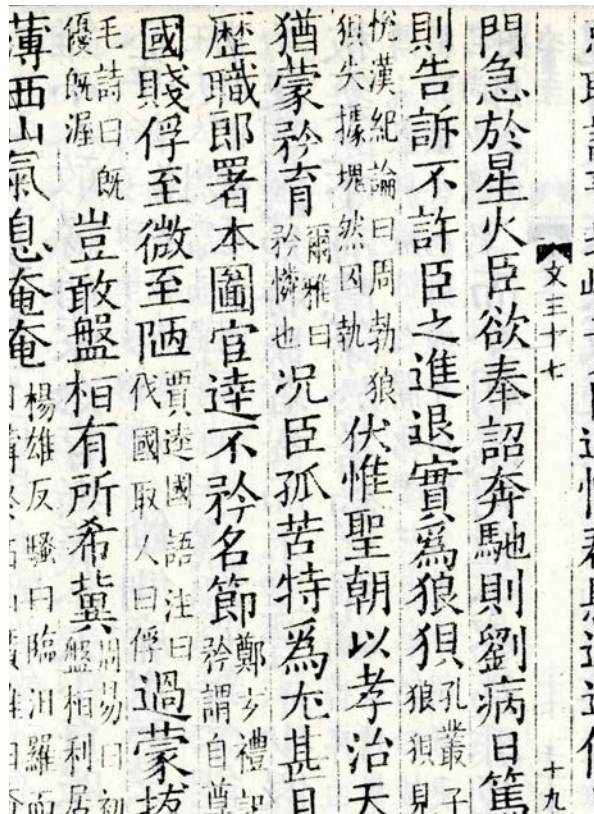 文三十七
十九
門急於星火臣欲奉詔奔馳則劉病日篤
則告訴不許臣之進退實爲狼狽孔叢子
狼狽見
恱漢紀論曰周勃狼
狽失據塊然囚執伏惟聖朝以孝治天
猶蒙矜育爾雅曰
矜憐也况臣孤苦特爲尤甚且
歷職郎署本圖宦逹不矜名節鄭玄禮記
矜謂自尊
國賤俘至微至陋賈逵國語注曰
伐國取人曰俘過蒙拔
毛詩曰既
優既渥豈敢盤桓有所希冀周易曰初
盤桓利居
薄西山氣息奄奄楊雄反騷曰臨汨羅而